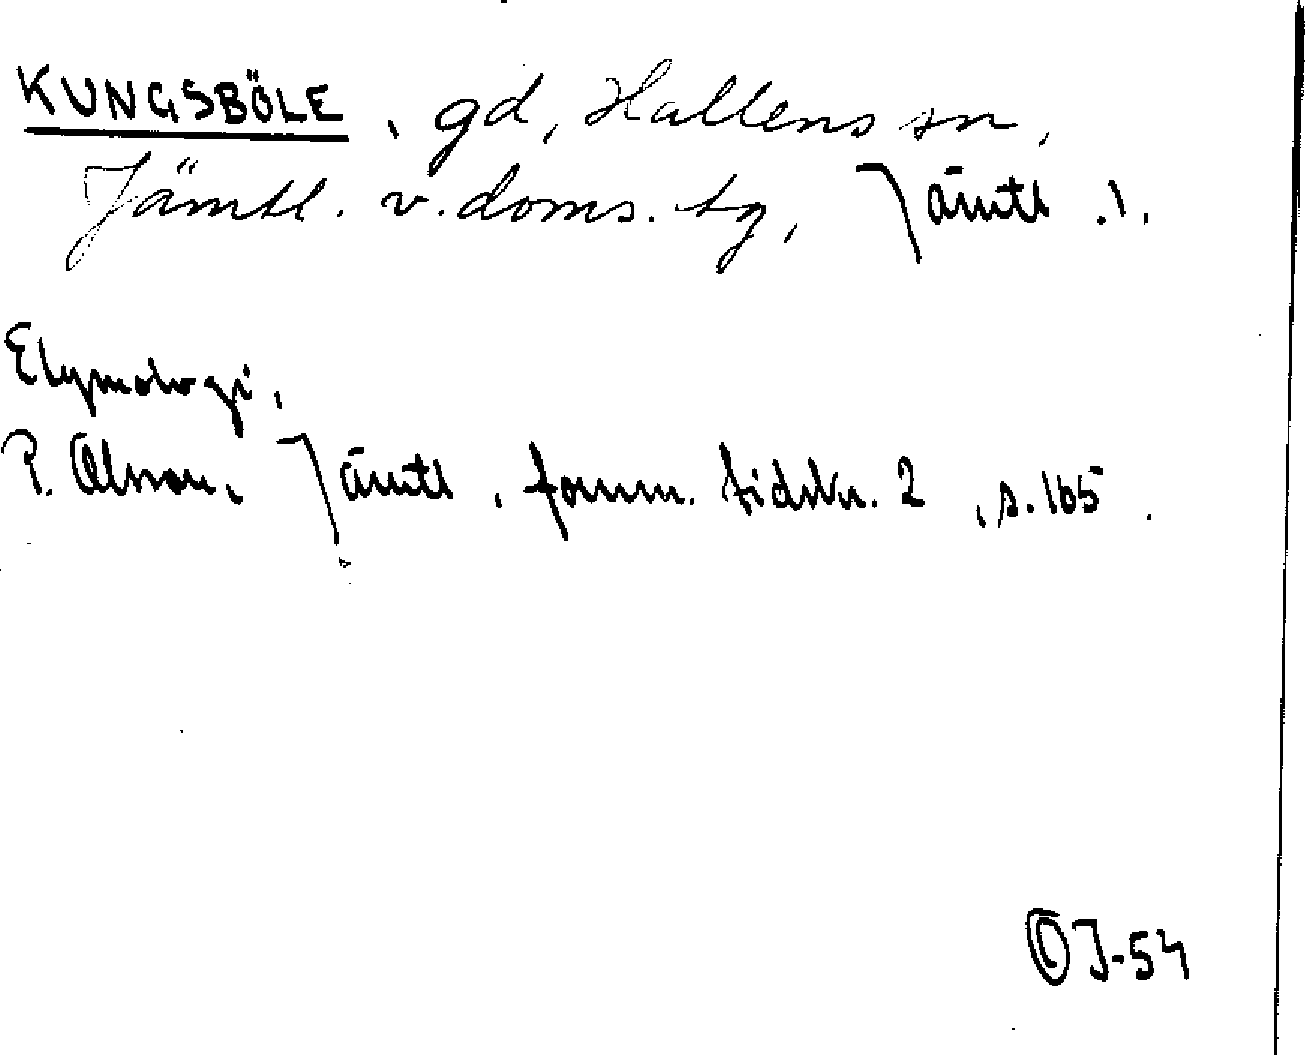 KUNGSBÖLE, gd, Hallens sn,
Jämtl. v. doms. tg, Jämtl. l.
Etymologi,
P. Olsson, Jämtl. fornm. tidskr. 2, s. 165.
OJ-54